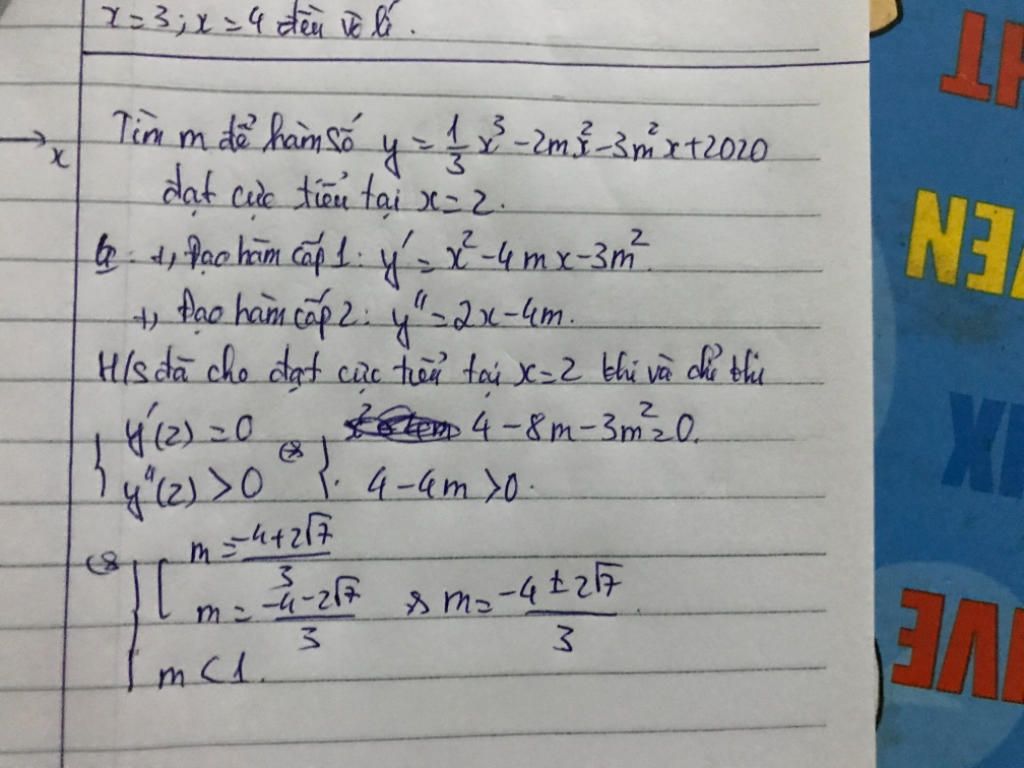 x=3; x=4 đều vô lí.
x
Tìm m để hàm số y = 1/3 x³ - 2mx² - 3m²x + 2020
đạt cực tiểu tại x=2.
+, Đạo hàm cấp 1: y' = x² - 4mx - 3m².
+, Đạo hàm cấp 2: y'' = 2x - 4m.
H/s đã cho đạt cực tiểu tại x=2 khi và chỉ khi
{ y'(2) = 0 ⇔ { 4 - 8m - 3m² = 0.
y''(2) > 0 4 - 4m > 0.
⇔ { [ m = (-4+2√7)/3
m = (-4-2√7)/3 m = (-4 ± 2√7)/3.
m < 1.
HT
EN
IX
IVE